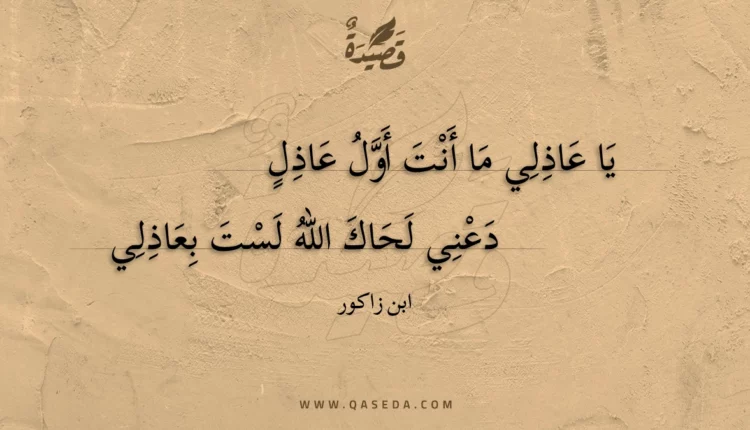 قَصِيدَةٌ
يَا عَاذِلِي مَا أَنْتَ أَوَّلُ عَاذِلٍ
دَعْنِي لَحَاكَ اللهُ لَسْتَ بِعَاذِلِي
ابن زاكور
WWW.QASEDA.COM